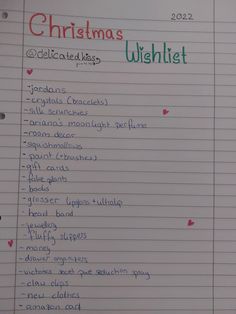 2022
Christmas
Wishlist
@delicatedkiss
-jordans
- crystals (bracelets)
- silk scrunchies
- ariana's moonlight perfume
- room decor
- squishmallows
- paint (+brushes)
- gift cards
- fake plants
- books
- glosser lipgloss +
- head band
- jewellery
- fluffy slippers
- money
- drawer organizers
- victorias secret pure seduction spray
- claw clips
- new clothes
- amazon card